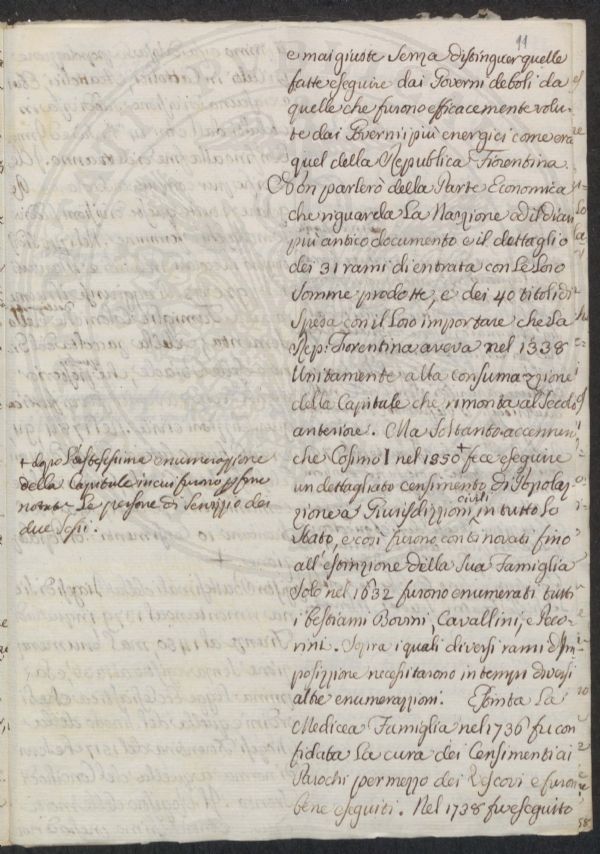 11
e mai giuste senza distinguer quelle
fatte eseguire dai Governi deboli da
quelle che furono efficacemente volu-
te dai Governi più energici come era
quel della Repubblica Fiorentina.
Non parlerò della Parte Economica
che riguarda La Nazione ad il di cui
più antico documento e il dettaglio
dei 31 rami di entrata con Le Loro
Somme prodotte, e dei 40 titoli di
Spesa con il Loro importare che La
Rep: Fiorentina aveva nel 1338
Unitamente alla consumazzione
della Capitale che rimonta al Secolo
anteriore. Ma Soltanto accennerò
che Cosimo I nel 1550 + fece eseguire
un dettagliato censimento di Popola-
zione a Giurisdizzioni civili in tutto Lo
Stato, e così furono continovati fino
all'estinzione della Sua Famiglia
Solo nel 1632 furono enumerati tutti
i bestiami Bovini, Cavallini, e Peco-
rini. Sopra i quali diversi rami d'Im-
posizzione necessitarono in tempi diversi
altre enumerazzioni. Estinta La
Medicea Famiglia nel 1736 fu con-
fidata La cura dei Censimenti ai
Parochi per mezzo dei Vescovi e furono
bene eseguiti. Nel 1738 fu eseguito
+ dopo L'esattissima enumerazzione
della Capitale in cui furono
notate Le persone di Servizio dei
due Sessi: